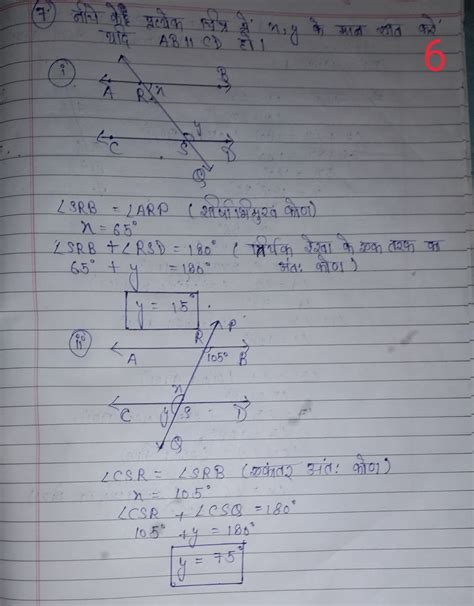 7. नीचे दिए प्रत्येक चित्र में x, y के मान ज्ञात करें
यदि AB II CD हो।
6
i
A R x B
y
C S D
Q
∠SRB = ∠ARP (शीर्षाभिमुख कोण)
x = 65°
∠SRB + ∠RSD = 180° ( तिर्यक रेखा के एक तरफ का
65° + y = 180° अंतः कोण )
y = 15°
ii
R P
A 105° B
x
C y S D
Q
∠CSR = ∠SRB (एकांतर अंतः कोण)
x = 105°
∠CSR + ∠CSQ = 180°
105° + y = 180°
y = 75°